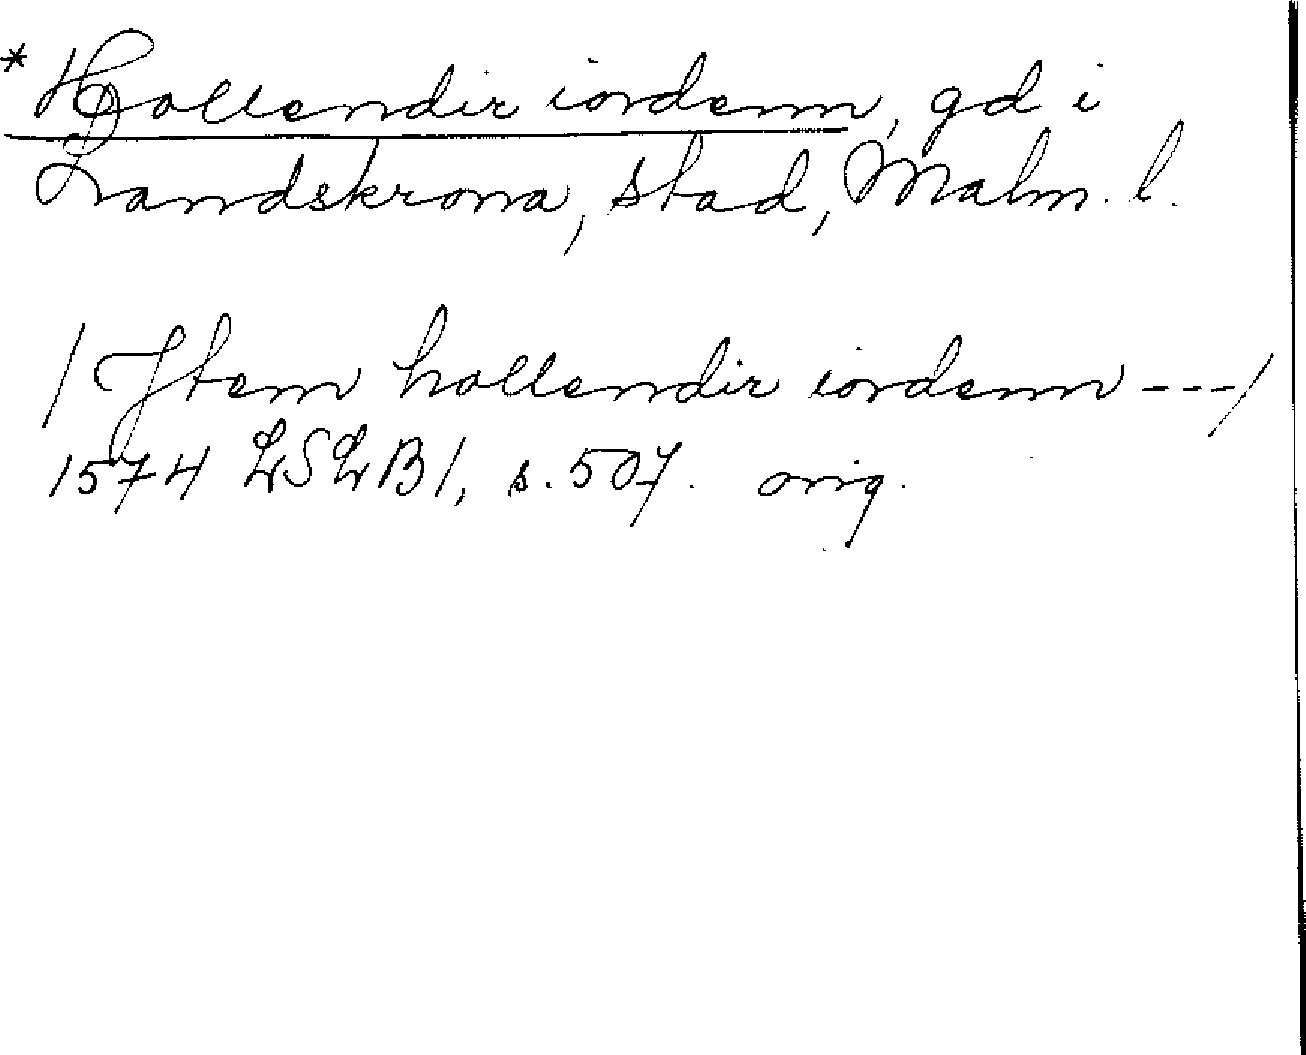 * Hollendir iordenn, gd i
Landskrona, stad, Malm. l.
/ Jtem hollendir iordenn --- /
1574 LSLB1, s. 507. orig.